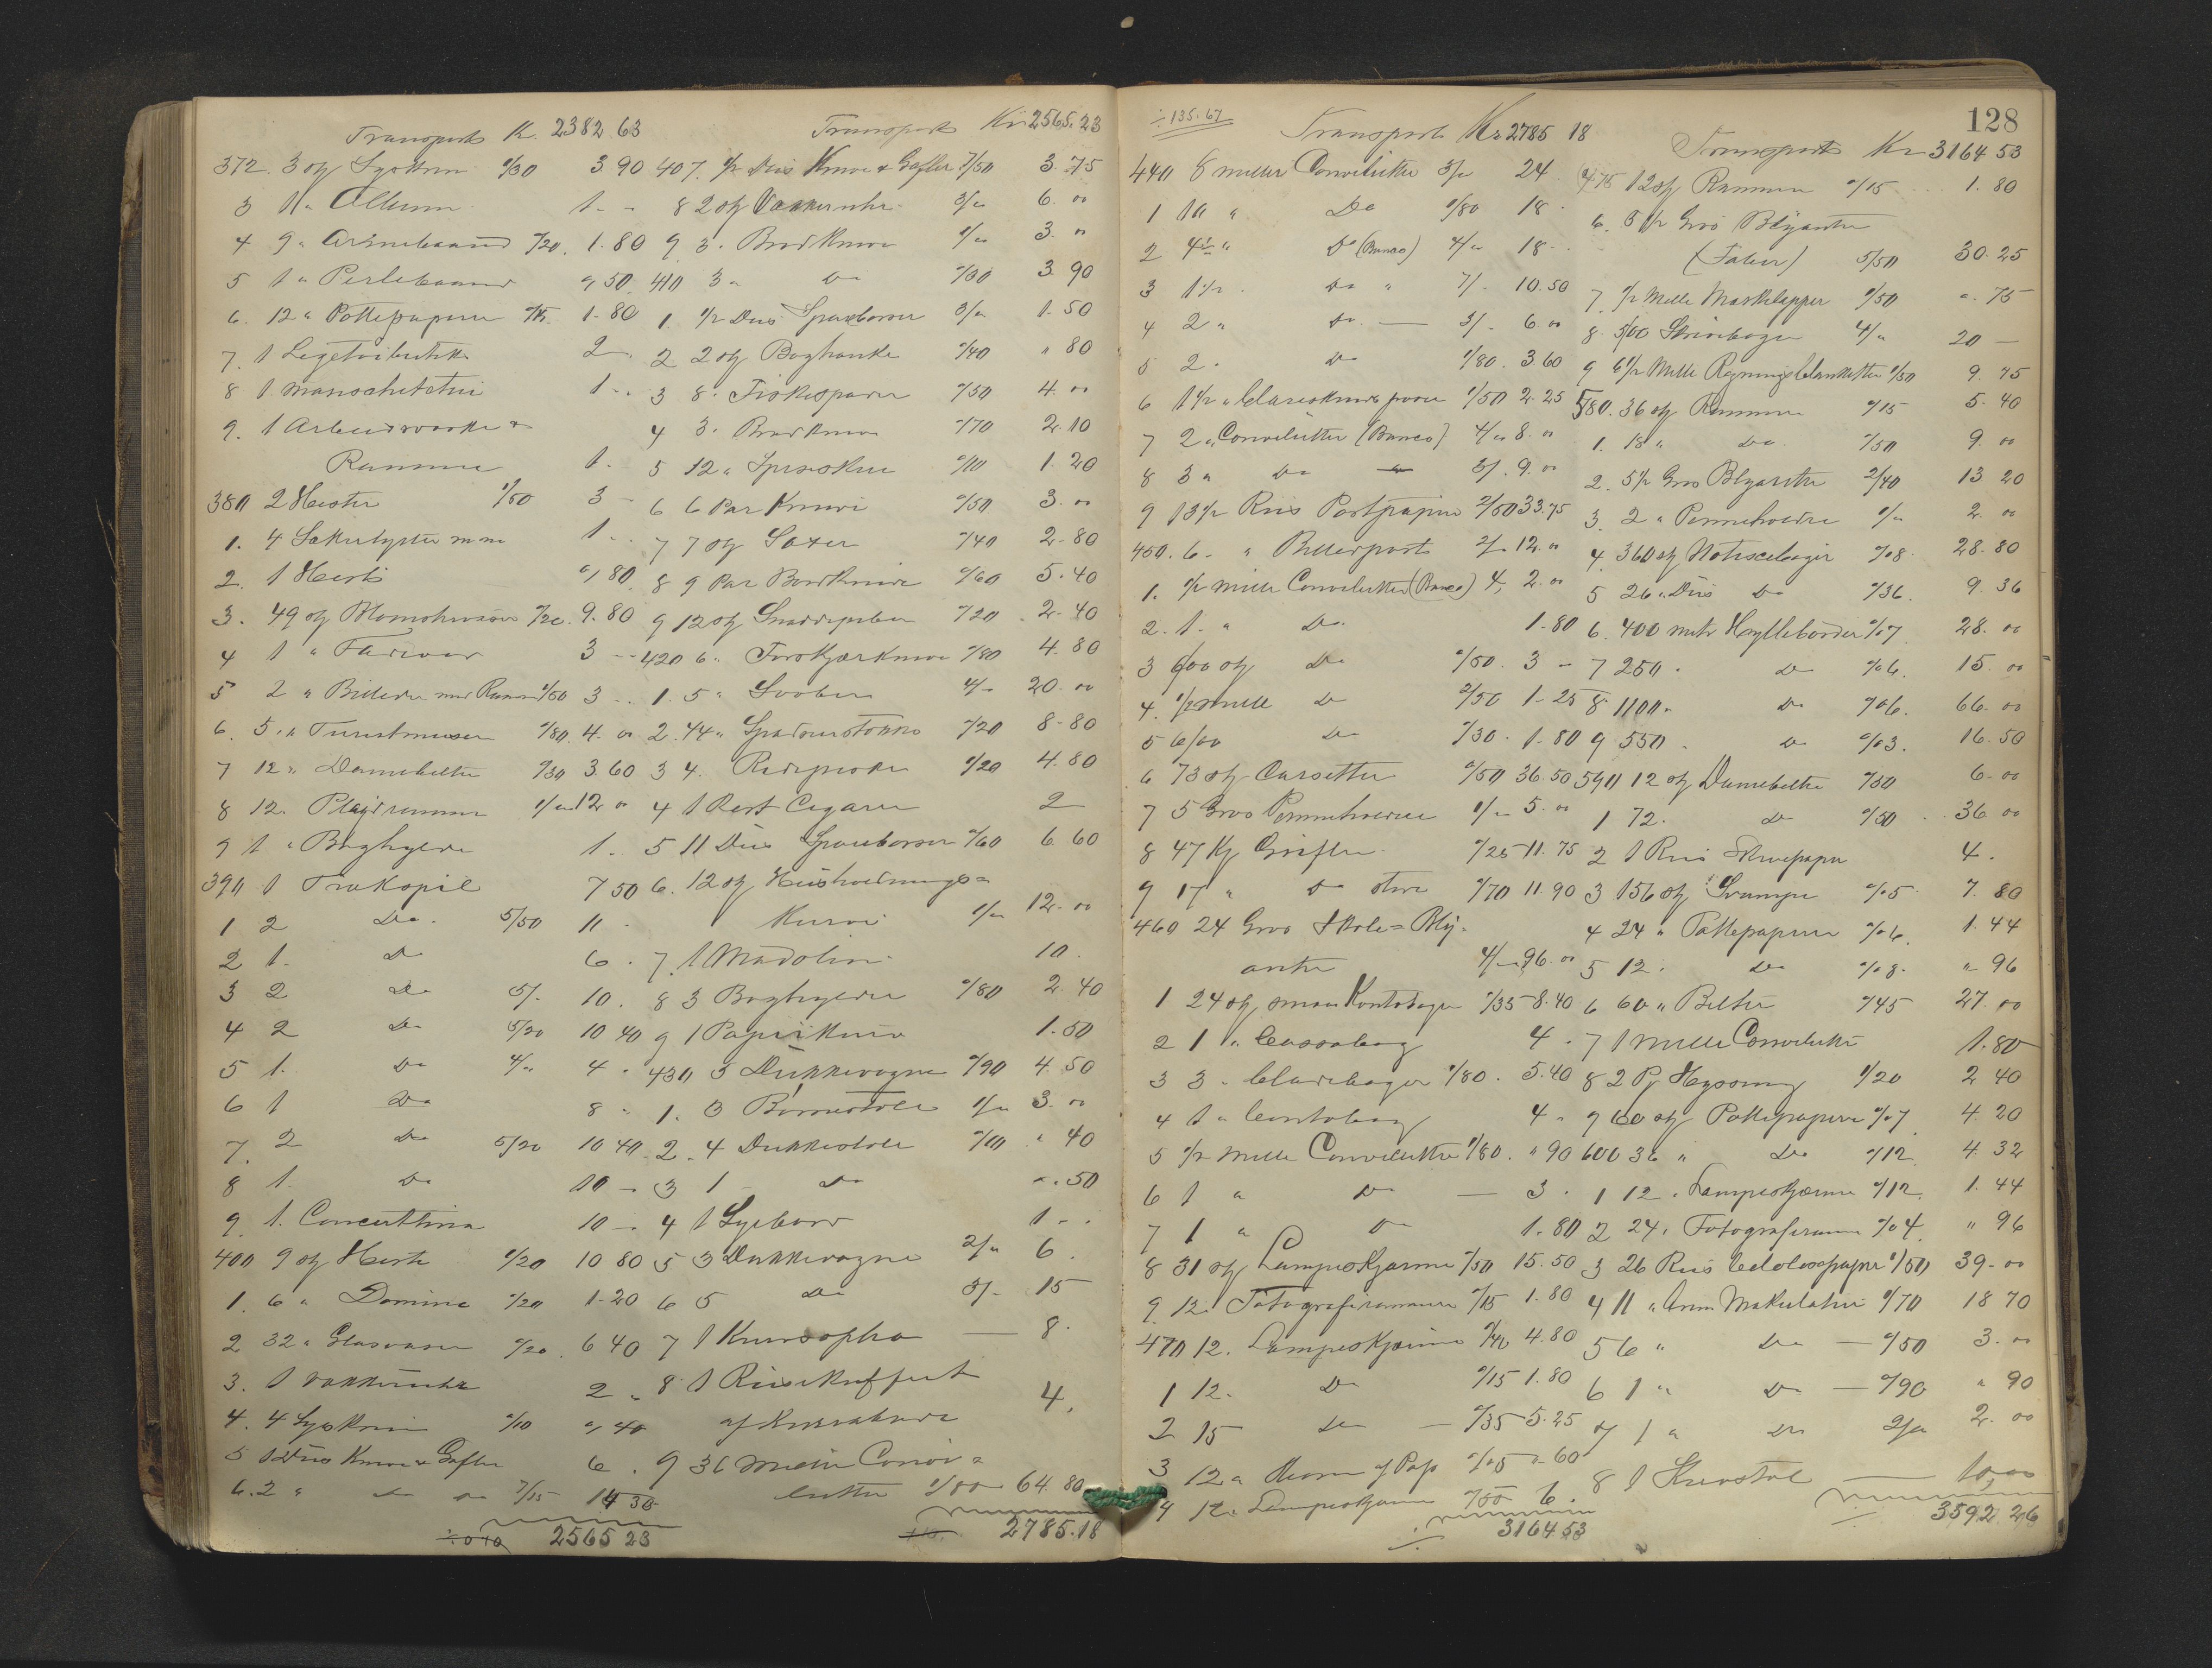 Transport Kr. 2382.63
372. 3 stk Syskrin 1/30 3.90
3 1 " Album 1. -
4 9 " Armbaand "/20. 1.80
5 1 " Perlebaand ", 50.
6. 12 " Pottepapirer "/15. 1.80
7. 1 Legetøibutik 2 -
8 1 Manschetetui 1. -
9. 1 Arbeidsvæske &
Ramme 1.
380 2 Hester 1/50 3 -
1. 4 m.m 1. -
2. 1 Hest ", 80
3. 49 stk "/20. 9.80
4 1 " 3 -
5 2 " Billeder med Rammer 1/50 3 -
6. 5. " "/80. 4. 00
7 12 " Damebelter "/30 3.60
8 12. Plaidremmer 1/" 12. 00
9 1 " Boghylde 1.
390 1 Trækspil 7 50
1 2 Do. 5/50 11 -
2 1. Do 6.
3 2 Do 5/. 10.
4 2 Do 5/20 10 40
5 1. Do 4/" 4 "
6 1 Do 8 "
7. 2 Do 5/20 10 40
8 1. Do 10 -
9. 1. Concertina 10 -
400 9 stk Heste 1/20 10 80
1. 6 " Domino "/20 1.20
2 32 " Glasvaser "/20. 6 40
3. 1 Vækkeruhr 2 "
4. 4 Syskrin "/10 ", 40
5 1 Dus Knive & Gafler 6.
6. 2 " do do 7/15 14 30
2565 23
Transport Kr 2565.23
407. 1/2 Dus Knive & Gafler 7/50 3.75
8 2 stk Vækkeruhr 3/" 6. 00
9. 3. Brødknive 1/" 3. "
410 3 " Do 1/30 3.90
1. 1/2 Dus Sparebørser 3/" 1.50
2 2 stk Boghanke "/40 " 80
3 8. "/50 4. 00
4 3. Brødknive "/70 2.10
5 12 " "/10 1.20
6 6 Par Knive "/50 3. 00
7 7 stk Saxer "/40 2.80
8 9 Par Bordknive "/60 5.40
9 12 stk Snaddepiber "/20 2.40
420 6 " "/80 4.80
1. 5 " 4/- 20. 00
2. 44 " Spadserstokke "/20 8.80
3 4. 1/20 4.80
4 1 Rest Cigarer 2
5 11 Dus Sparebørser "/60 6.60
6. 12 stk Husholdnings=
Kurve 1/" 12. 00
7. 1 Madolin. 10.
8 3 Boghylder "/80 2.40
9 1 Papirkurv 1.50
430 5 Dukkevogne "/90 4.50
1. 3 Børnestole 1/" 3. 00
2. 4 Dukkestole "/10 " 40
3 1 - do " .50
4 1 Sybord 1 - .
5 3 Dukkevogne 2/" 6.
6 5 Do 3/- 15
7 1 Kurvsopha — 8.
8 1 Reisekuffert
af Kurvarbeide 4,
9 36 Mille Convo=
lutter 1/80 64.80
2785.18
÷ 135.67
Transport Kr 2785 18
440 8 mille Convolutter 3/" 24.
1 10 " Do 1/80 18.
2 4 1/2 " Do (Banco) 4/" 18 -
3 1 1/2 . Do " 7/- 10.50
4 2 " Do. — 3/- 6. 00
5 2 . Do 1/80. 3.60
6 1 1/2 " 1/50 2.25
7 2 " Convolutter (Banco) 4/" 8. 00
8 3 " Do 3/. 9. 00
9 13 1/2 Ris Postpapir 2/50 33.75
450. 6 - " Billetpost 2/. 12. 00
1. 1/2 mille Convolutter (Banco) 4, 2. 00
2. 1. " Do. 1.80
3 6/00 stk Do "/50. 3 -
4. 1/2 mille Do 2/50 1.25
5 6/00 Do "/30. 1.80
6 73 stk Carsetter "/50 36.50
7 5 Gros Penneholdere 1/- 5. 00
8 47 Kg Grifler "/25 11.75
9 17 " Do store "/70 11.90
460 24 Gros Skole=Bly-
anter 4/- 96. 00
1 24 stk smaa Kontobøger "/35 8.40
2 1 " Cassabog 4 .
3 3 . Cladebøger 1/80. 5.40
4 1 " Contobog 4 "
5 1/2 mille Convolutter 1/80. " 90
6 1 " Do — 3 .
7 1 " Do 1.80
8 31 stk Lampeskjærme "/50 15.50
9. 12. Fotografirammer "/15 1.80
470 12. Lampeskjærme "/40 4.80
1 12. Do "/15 1.80
2 15 Do — "/35 5.25
3 12 " af Pap "/05 " 60
4 12. Lampeskjærme "/50 6.
3164 53
128
Transport Kr 3164 53
475 12 stk Rammer "/15 1.80
6. 5 1/2 Gros Blyanter
(Faber) 5/50 30.25
7. 1/2 Mille Mærkelapper 1/50 ". 75
8. 5/00 Skrivebøger 4/" 20 —
9 6 1/2 Mille Regningsblanketter 1/50 9. 75
580. 36 stk Rammer "/15 5.40
1. 18 " Do. "/50 9. 00
2. 5 1/2 Gros Blyanter 2/40 13 20
3. 2 " Penneholdre 1/" 2. 00
4. 360 stk Notisebøger "/08. 28.80
5 26 " Dus Do "/36. 9.36
6. 400 metr Hylleborder "/07. 28. 00
7 250 . Do "/06. 15. 00
8 1100 " Do "/06. 66. 00
9 550 . Do "/03. 16.50
590 12 stk Damebelter "/50 6. 00
1 72. Do "/50 36 00
2 1 Ris Skrivepapir 4.
3 156 stk Svampe "/05. 7. 80
4 24 " Pottepapirer "/06. 1.44
5 12. Do "/08. " 96
6 60 " Belter "/45 27. 00
7 1 Mille Convolutter 1.80
8 2 Pj 1/20 2 40
9 60 stk Pottepapirer "/07. 4.20
600 36 " Do "/12. 4.32
1 12 . Lampeskjærme "/12. 1.44
2 24 . Fotograframme "/04. " 96
3 26 Ris 1/50 39. 00
4 11 " Makulatur 1/70 18 70
5 6 " Do — "/50 3. 00
6 1 " Do — "/90 " 90
7 1 " Do 2/" 2. 00
8 1 Kurvstol — 10,00
3592 26